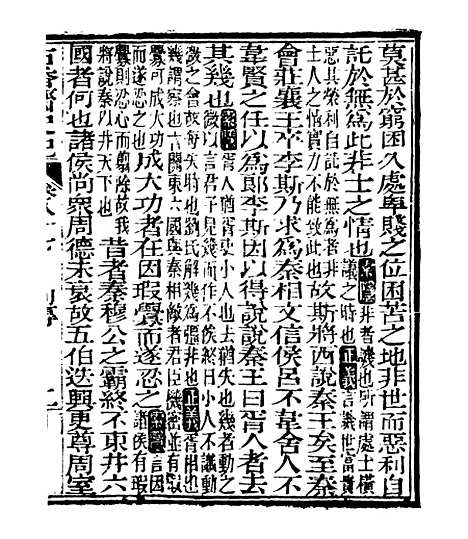 莫甚於窮困久處卑賤之位困苦之地非世而惡利自
託於無爲此非士之情也索隱非者譏也所謂處士橫議之時也正義言譏世富貴
惡其榮利自託於無爲者非士人之情實力不能致此也故斯將西說秦王矣至秦
會莊襄王卒李斯乃求爲秦相文信侯呂不韋舍人不
韋賢之任以爲郎李斯因以得說說秦王曰胥人者去
其幾也索隱胥人猶胥吏小人也去猶失也幾者動之微以言君子見幾而作不俟終日小人不識動
微之會故每失時也劉氏解幾爲彊非也正義胥相也幾謂察也言關東六國與秦相敵者君臣機密並有瑕
釁可成大功而遂忍之也成大功者在因瑕釁而遂忍之索隱言因諸侯有瑕
釁則忍心而翦除故我將說秦以并天下也昔者秦穆公之霸終不東并六
國者何也諸侯尚衆周德未衰故五伯迭興更尊周室